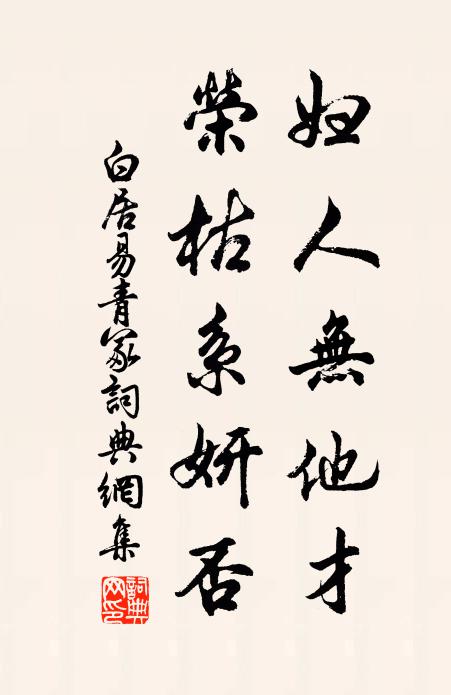 妇人無他才
榮枯系妍否
白居易青冢詞典網集
詞典網印